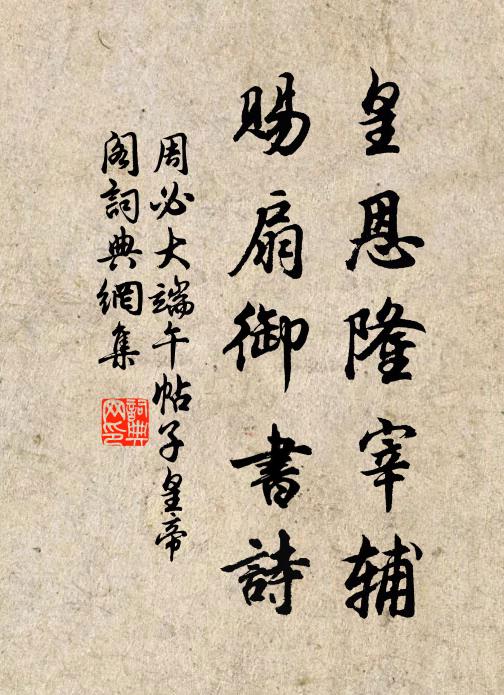 皇恩隆宰辅
賜扇御書詩
周必大端午帖子皇帝
阁詞典網集
詞典
网印